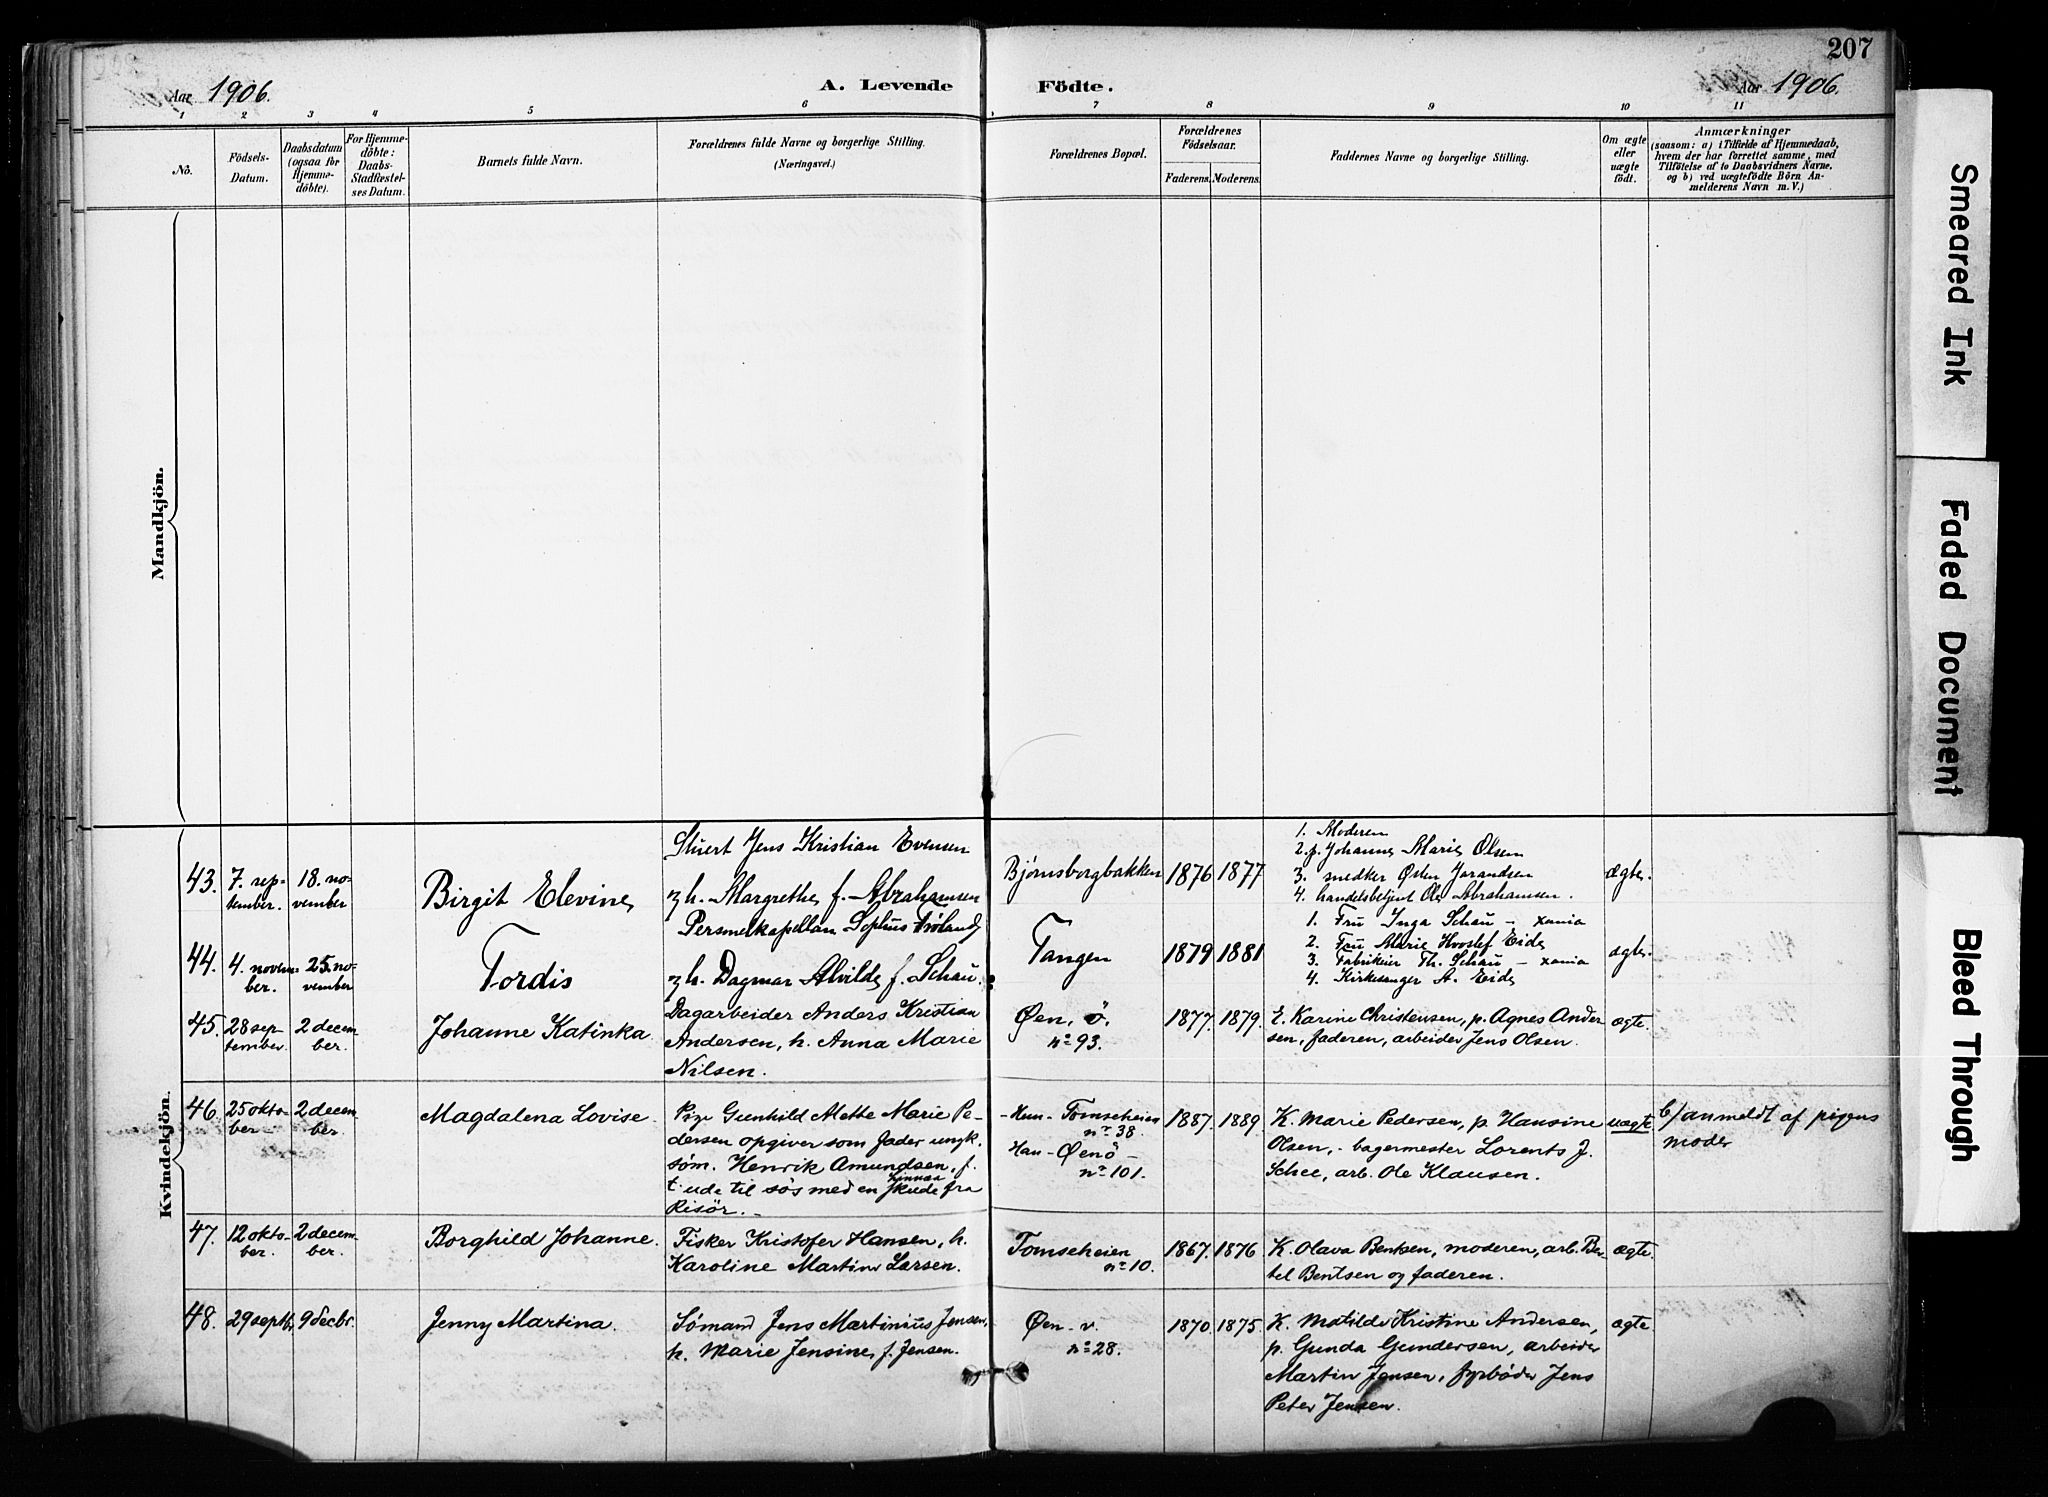 207
Aar 1906.
A. Levende
Födte.
Aar 1906.
1 2 3 4 5 6 7 8 9 10 11
No.
Födsels-
Datum.
Daabsdatum
(ogsaa for
Hjemme-
döbte).
For Hjemme-
döbte:
Daabs-
Stadfæstel-
ses Datum.
Barnets fulde Navn.
Forældrenes fulde Navne og borgerlige Stilling.
(Næringsvei.)
Forældrenes Bopæl.
Forældrenes
Födselsaar.
Faderens.
Moderens.
Faddernes Navne og borgerlige Stilling.
Om ægte
eller
uægte
födt.
Anmærkninger
(saasom: a) i Tilfælde af Hjemmedaab,
hvem der har forrettet samme, med
Tilföielse af to Daabsvidners Navne,
og b) ved uægtefödte Börn An-
melderens Navn m. V.)
Mandkjön.
Kvindekjön.
43.
7. sep-
tember.
18. no-
vember
Birgit Elevine
Stuert Jens Kristian Evensen
og h. Margrethe f. Abrahamsen
Bjørnsborgbakken
1876
1877
1. Moderen
2. p. Johanne Marie Olsen
3. snedker Østen Jorandsen
4. handelsbetjent Ole Abrahamsen.
ægte.
44.
4. novem-
ber.
25. no-
vember
Tordis
Personelkapellan Sophus Frøland
og h. Dagmar Alvilde f. Schau.
Tangen
1879
1881
1. Fru Inga Schau – xania
2. Fru Marie Hvoslef Eide
3. Fabrikeier Th. Schau – xania
4. Kirkesanger A. Eide
ægte.
45.
28 sep-
tember.
2 decem
ber.
Johanne Katinka
Dagarbeider Anders Kristian
Andersen, h. Anna Marie
Nilsen.
Øen, ö.
nº 93.
1877.
1879.
E. Karine Christensen, p. Agnes Ander
sen, faderen, arbeider Jens Olsen.
ægte.
46.
25 okto-
ber
2 decem
ber.
Magdalena Lovise.
Pige Gunhild Mette Marie Pe-
dersen opgiver som fader ungk.
søm. Henrik Amundsen, f.
t. ude til søs med en finnsk skude fra
Risør.
- Hun - Tomseheien
nº 38.
Han - Øenö -
nº 101.
1887.
1889.
K. Marie Pedersen, p. Hansine
Olsen, - bagermester Lorents J.
Schee, arb. Ole Klausen.
uægte.
b/ anmeldt af pigens
moder
47.
12 okto-
ber.
2 decem
ber.
Borghild Johanne.
Fisker Kristofer Hansen, h.
Karoline Martine Larsen.
Tomseheien
nº 10.
1867.
1876
K. Olava Bentsen, moderen, arb. Ber-
tel Bentsen og faderen.
ægte.
48.
29 septb.
9 decbr.
Jenny Martina.
Sømand Jens Martinius Jensen,
h. Marie Jensine, f. Jensen.
Øen - v.
nº 28.
1870.
1875.
K. Matilde Kristine Andersen,
p. Gunda Gundersen, arbeider
Martin Jensen, fyrbøder Jens
Peter Jensen.
ægte
Smeared Ink
Faded Document
Bleed Through